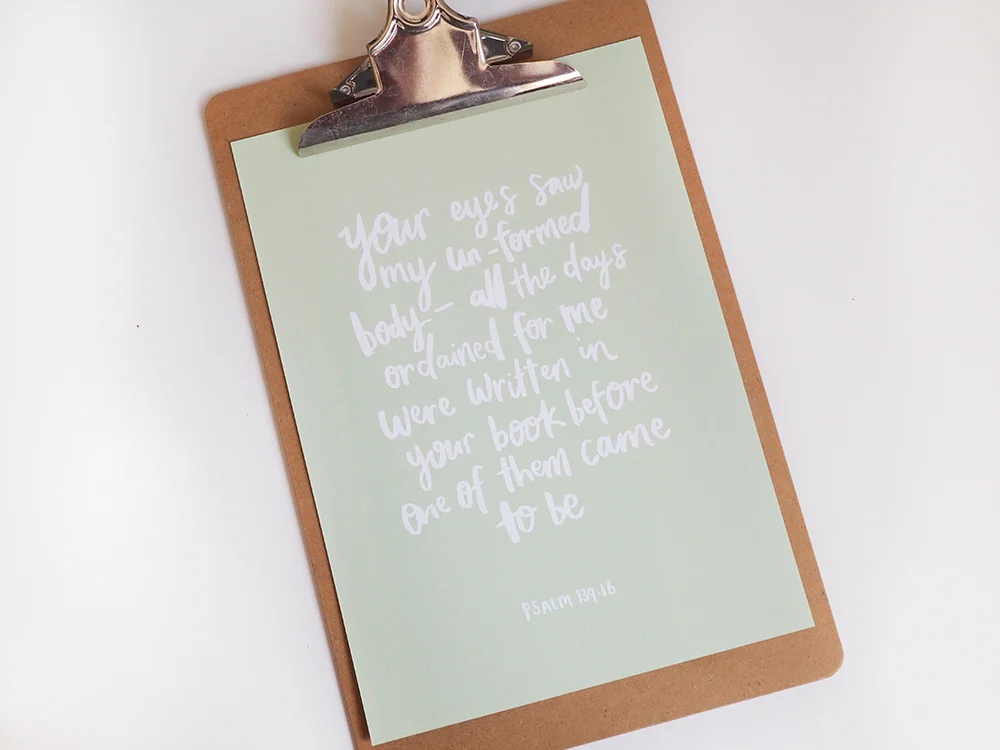 your eyes saw
my un-formed
body - all the days
ordained for me
were written in
your book before
one of them came
to be
PSALM 139:16